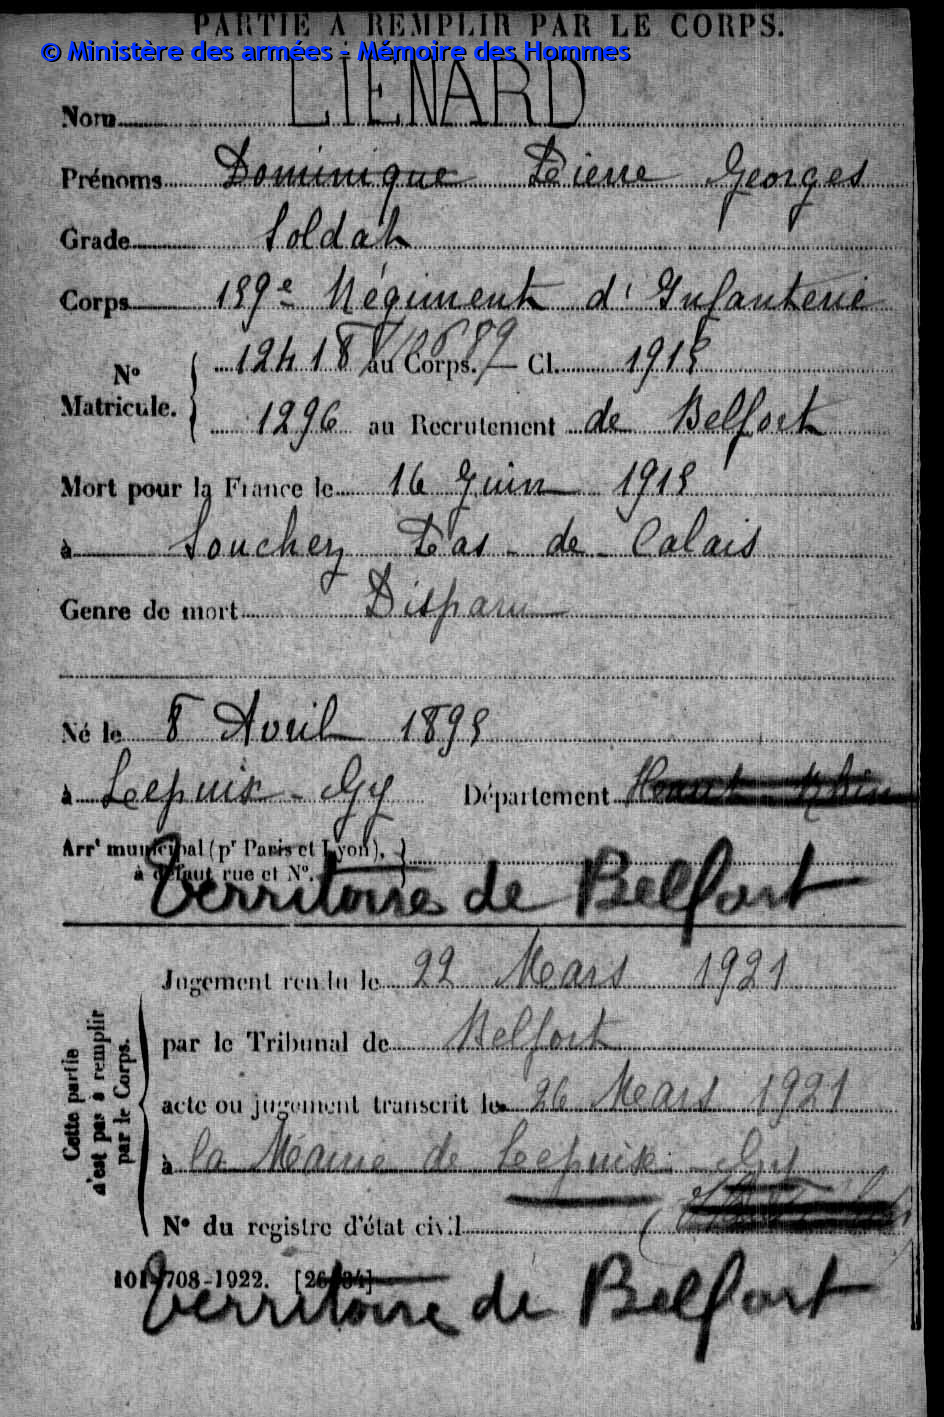 PARTIE À REMPLIR PAR LE CORPS.
© Ministère des armées - Mémoire des Hommes
Nom LIÉNARD
Prénoms Dominique Pierre Georges
Grade Soldat
Corps 159e Régiment d'Infanterie
No Matricule. 12418 au Corps. — Cl. 1915
1296 au Recrutement de Belfort
Mort pour la France le 16 Juin 1915
à Souchez Pas-de-Calais
Genre de mort Disparu
Né le 8 Avril 1895
à Lepuix-Gy Département Haut-Rhin
Arrt municipal (pr Paris et Lyon), à défaut rue et No.
Territoire de Belfort
Cette partie n'est pas à remplir par le Corps.
Jugement rendu le 22 Mars 1921
par le Tribunal de Belfort
acte ou jugement transcrit le 26 Mars 1921
à la Mairie de Lepuix-Gy
No du registre d'état civil
101-708-1922. [26434]
Territoire de Belfort